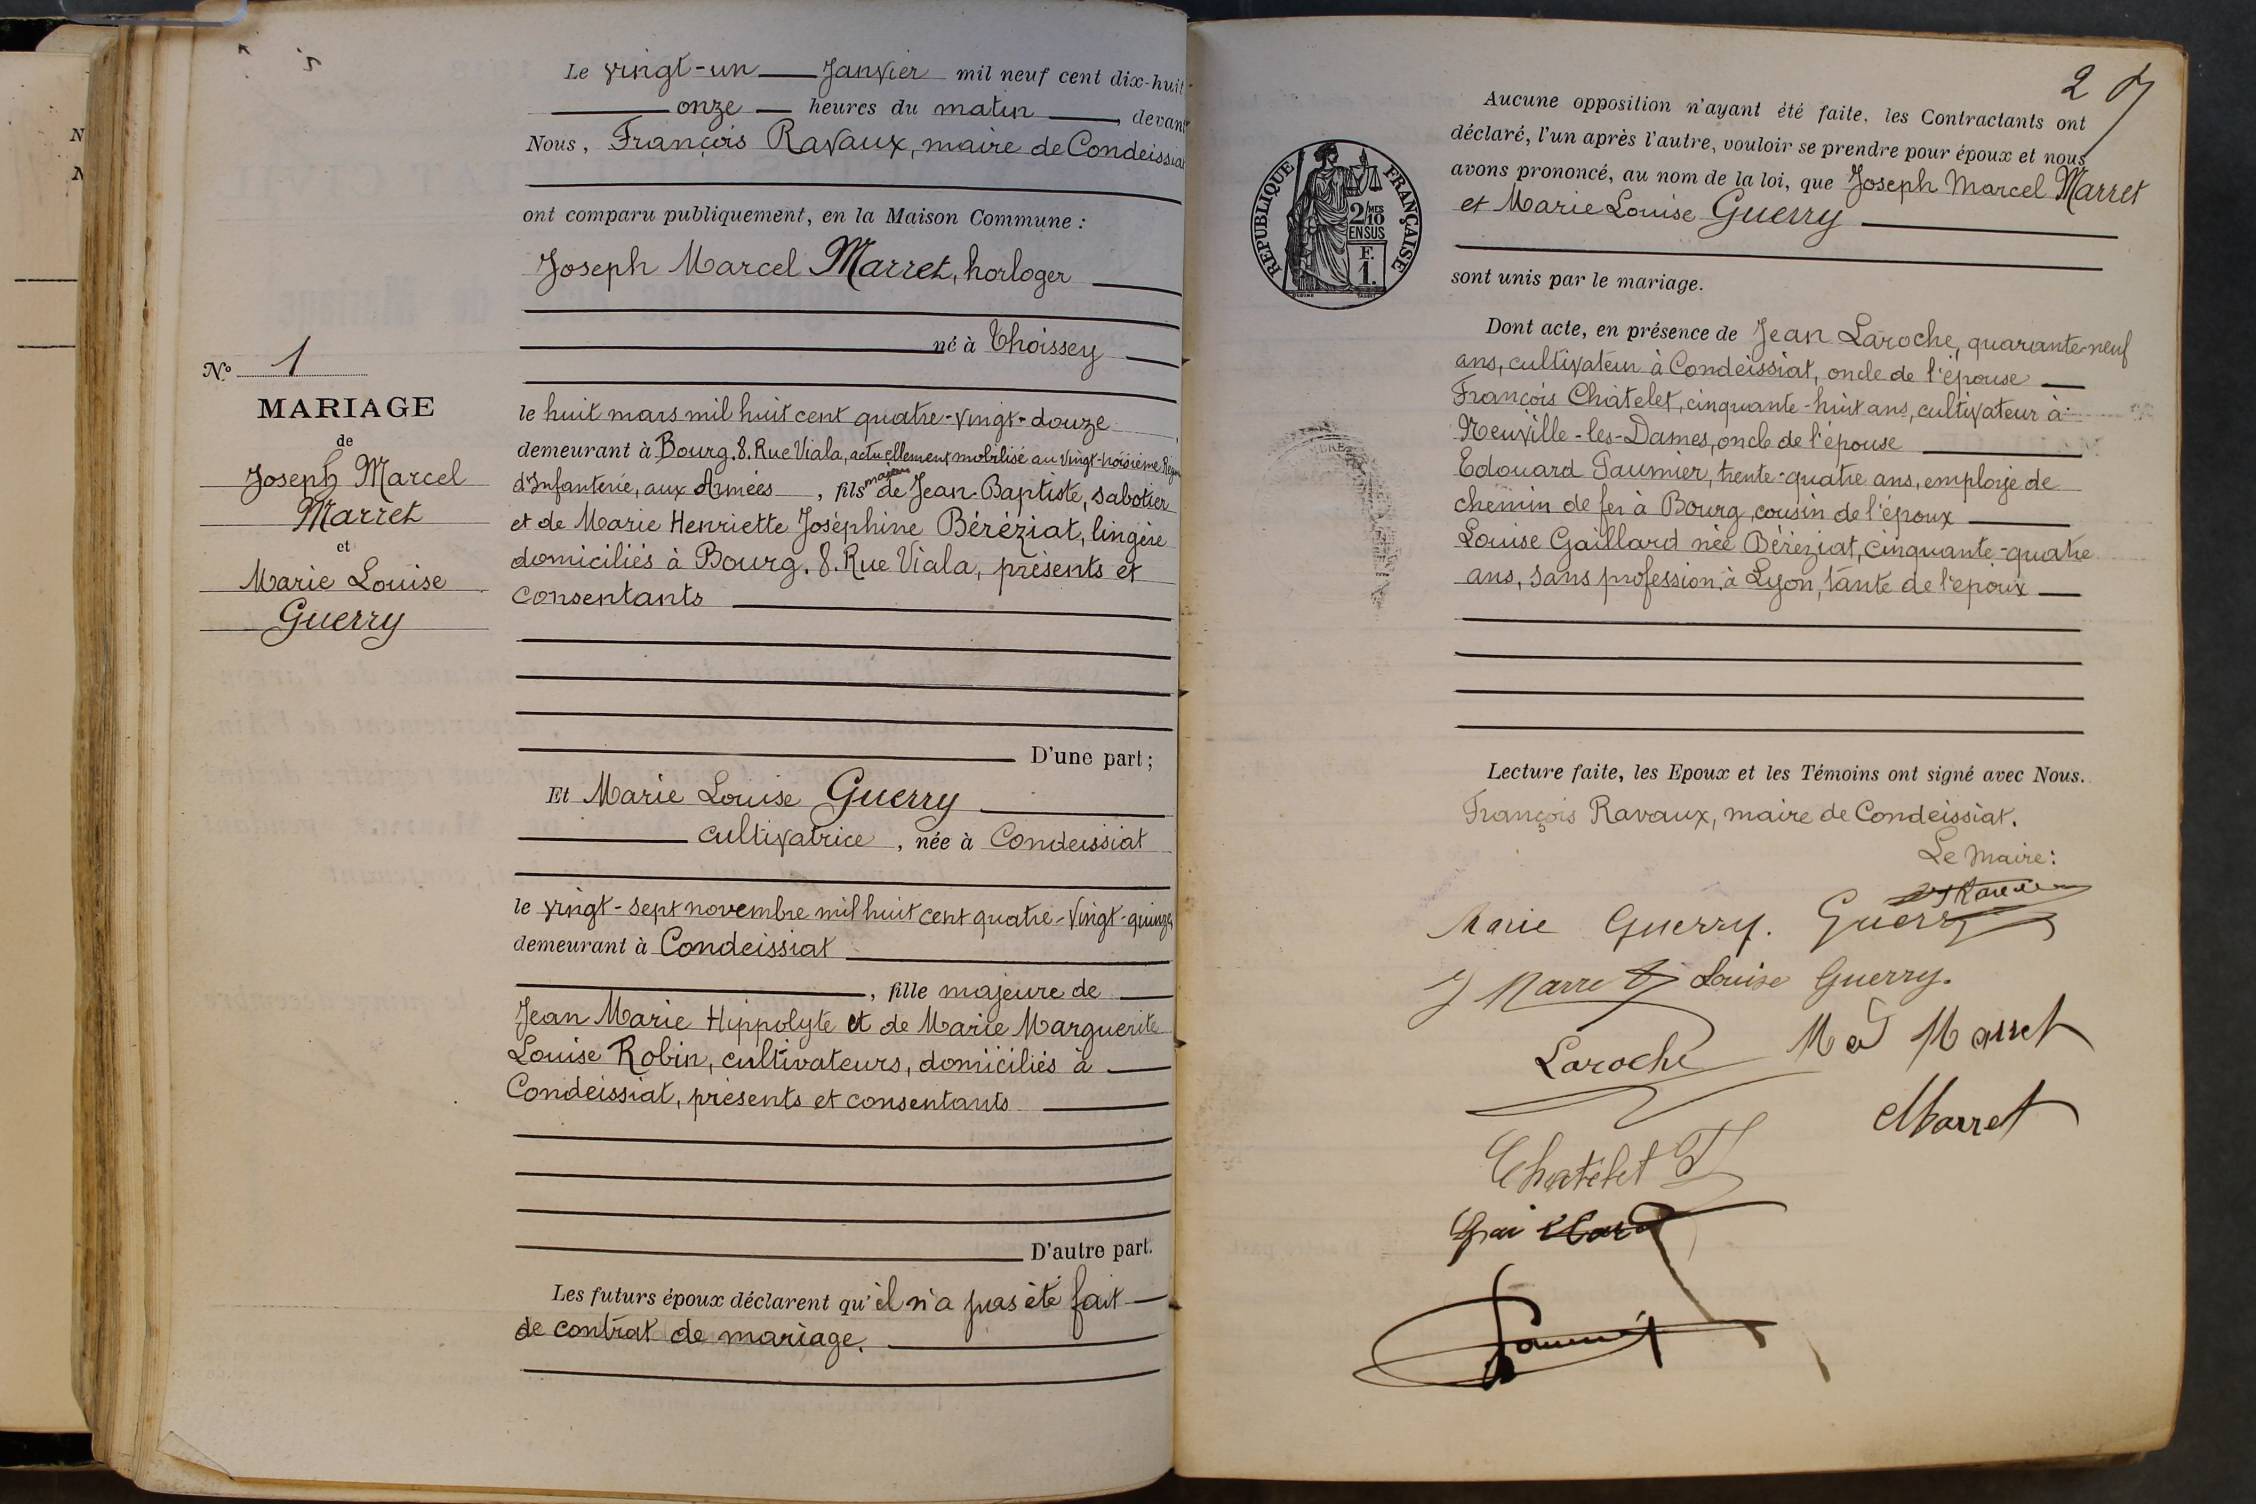 Le vingt-un janvier mil neuf cent dix-huit
onze heures du matin, devant
Nous, François Ravaux, maire de Condeissiat
ont comparu publiquement, en la Maison Commune :
Joseph Marcel Marret, horloger
né à Thoissey
No 1
MARIAGE
de
Joseph Marcel
Marret
et
Marie Louise
Guerry
le huit mars mil huit cent quatre-vingt-douze
demeurant à Bourg. 8. Rue Viala, actuellement mobilisé au vingt-troisième Régim
d'Infanterie, aux Armées, fils majeur de Jean-Baptiste, sabotier
et de Marie Henriette Joséphine Béréziat, lingère
domiciliés à Bourg. 8. Rue Viala, présents et
consentants
D'une part ;
Et Marie Louise Guerry
cultivatrice, née à Condeissiat
le vingt-sept novembre mil huit cent quatre-vingt-quinze
demeurant à Condeissiat
, fille majeure de
Jean Marie Hippolyte et de Marie Marguerite
Louise Robin, cultivateurs, domiciliés à
Condeissiat, présents et consentants
D'autre part.
Les futurs époux déclarent qu'il n'a pas été fait
de contrat de mariage.
2
Aucune opposition n'ayant été faite, les Contractants ont
déclaré, l'un après l'autre, vouloir se prendre pour époux et nous
avons prononcé, au nom de la loi, que Joseph Marcel Marret
et Marie Louise Guerry
sont unis par le mariage.
REPUBLIQUE FRANÇAISE
2/10 MES
EN SUS
F.
1.
Dont acte, en présence de Jean Laroche, quarante-neuf
ans, cultivateur à Condeissiat, oncle de l'épouse
François Châtelet, cinquante-huit ans, cultivateur à
Neuville-les-Dames, oncle de l'épouse
Edouard Paumier, trente-quatre ans, employé de
chemin de fer à Bourg, cousin de l'époux
Louise Gaillard née Béréziat, cinquante-quatre
ans, sans profession, à Lyon, tante de l'époux
Lecture faite, les Epoux et les Témoins ont signé avec Nous.
François Ravaux, maire de Condeissiat.
Le Maire :
Marie Guerry. Guerry
J Marret Louise Guerry.
Laroche Marret
Marret
Chatelet F
Gaillard
Paumier